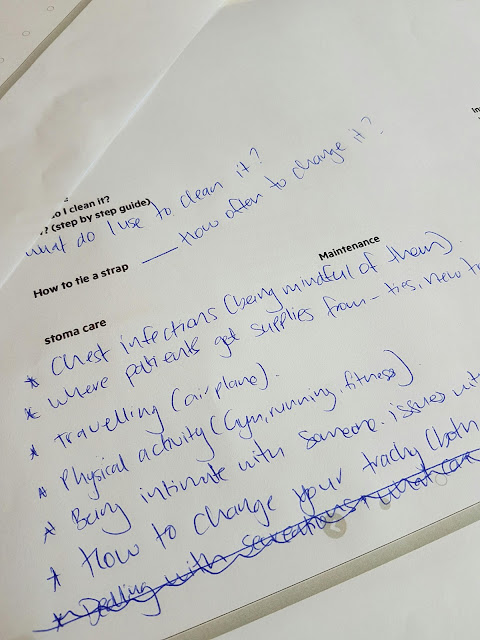 o I clean it?
? (step by step guide)
what do I use to clean it?
How to tie a strap
How often to change it?
Maintenance
stoma care
* Chest infections (being mindful of them).
* where patients get supplies from - ties, new
* Travelling (airplane).
* Physical activity (Gym, running, fitness)
* Being intimate with someone. issues wit
* How to change your trachy (both
* Dealing with secretions & what can